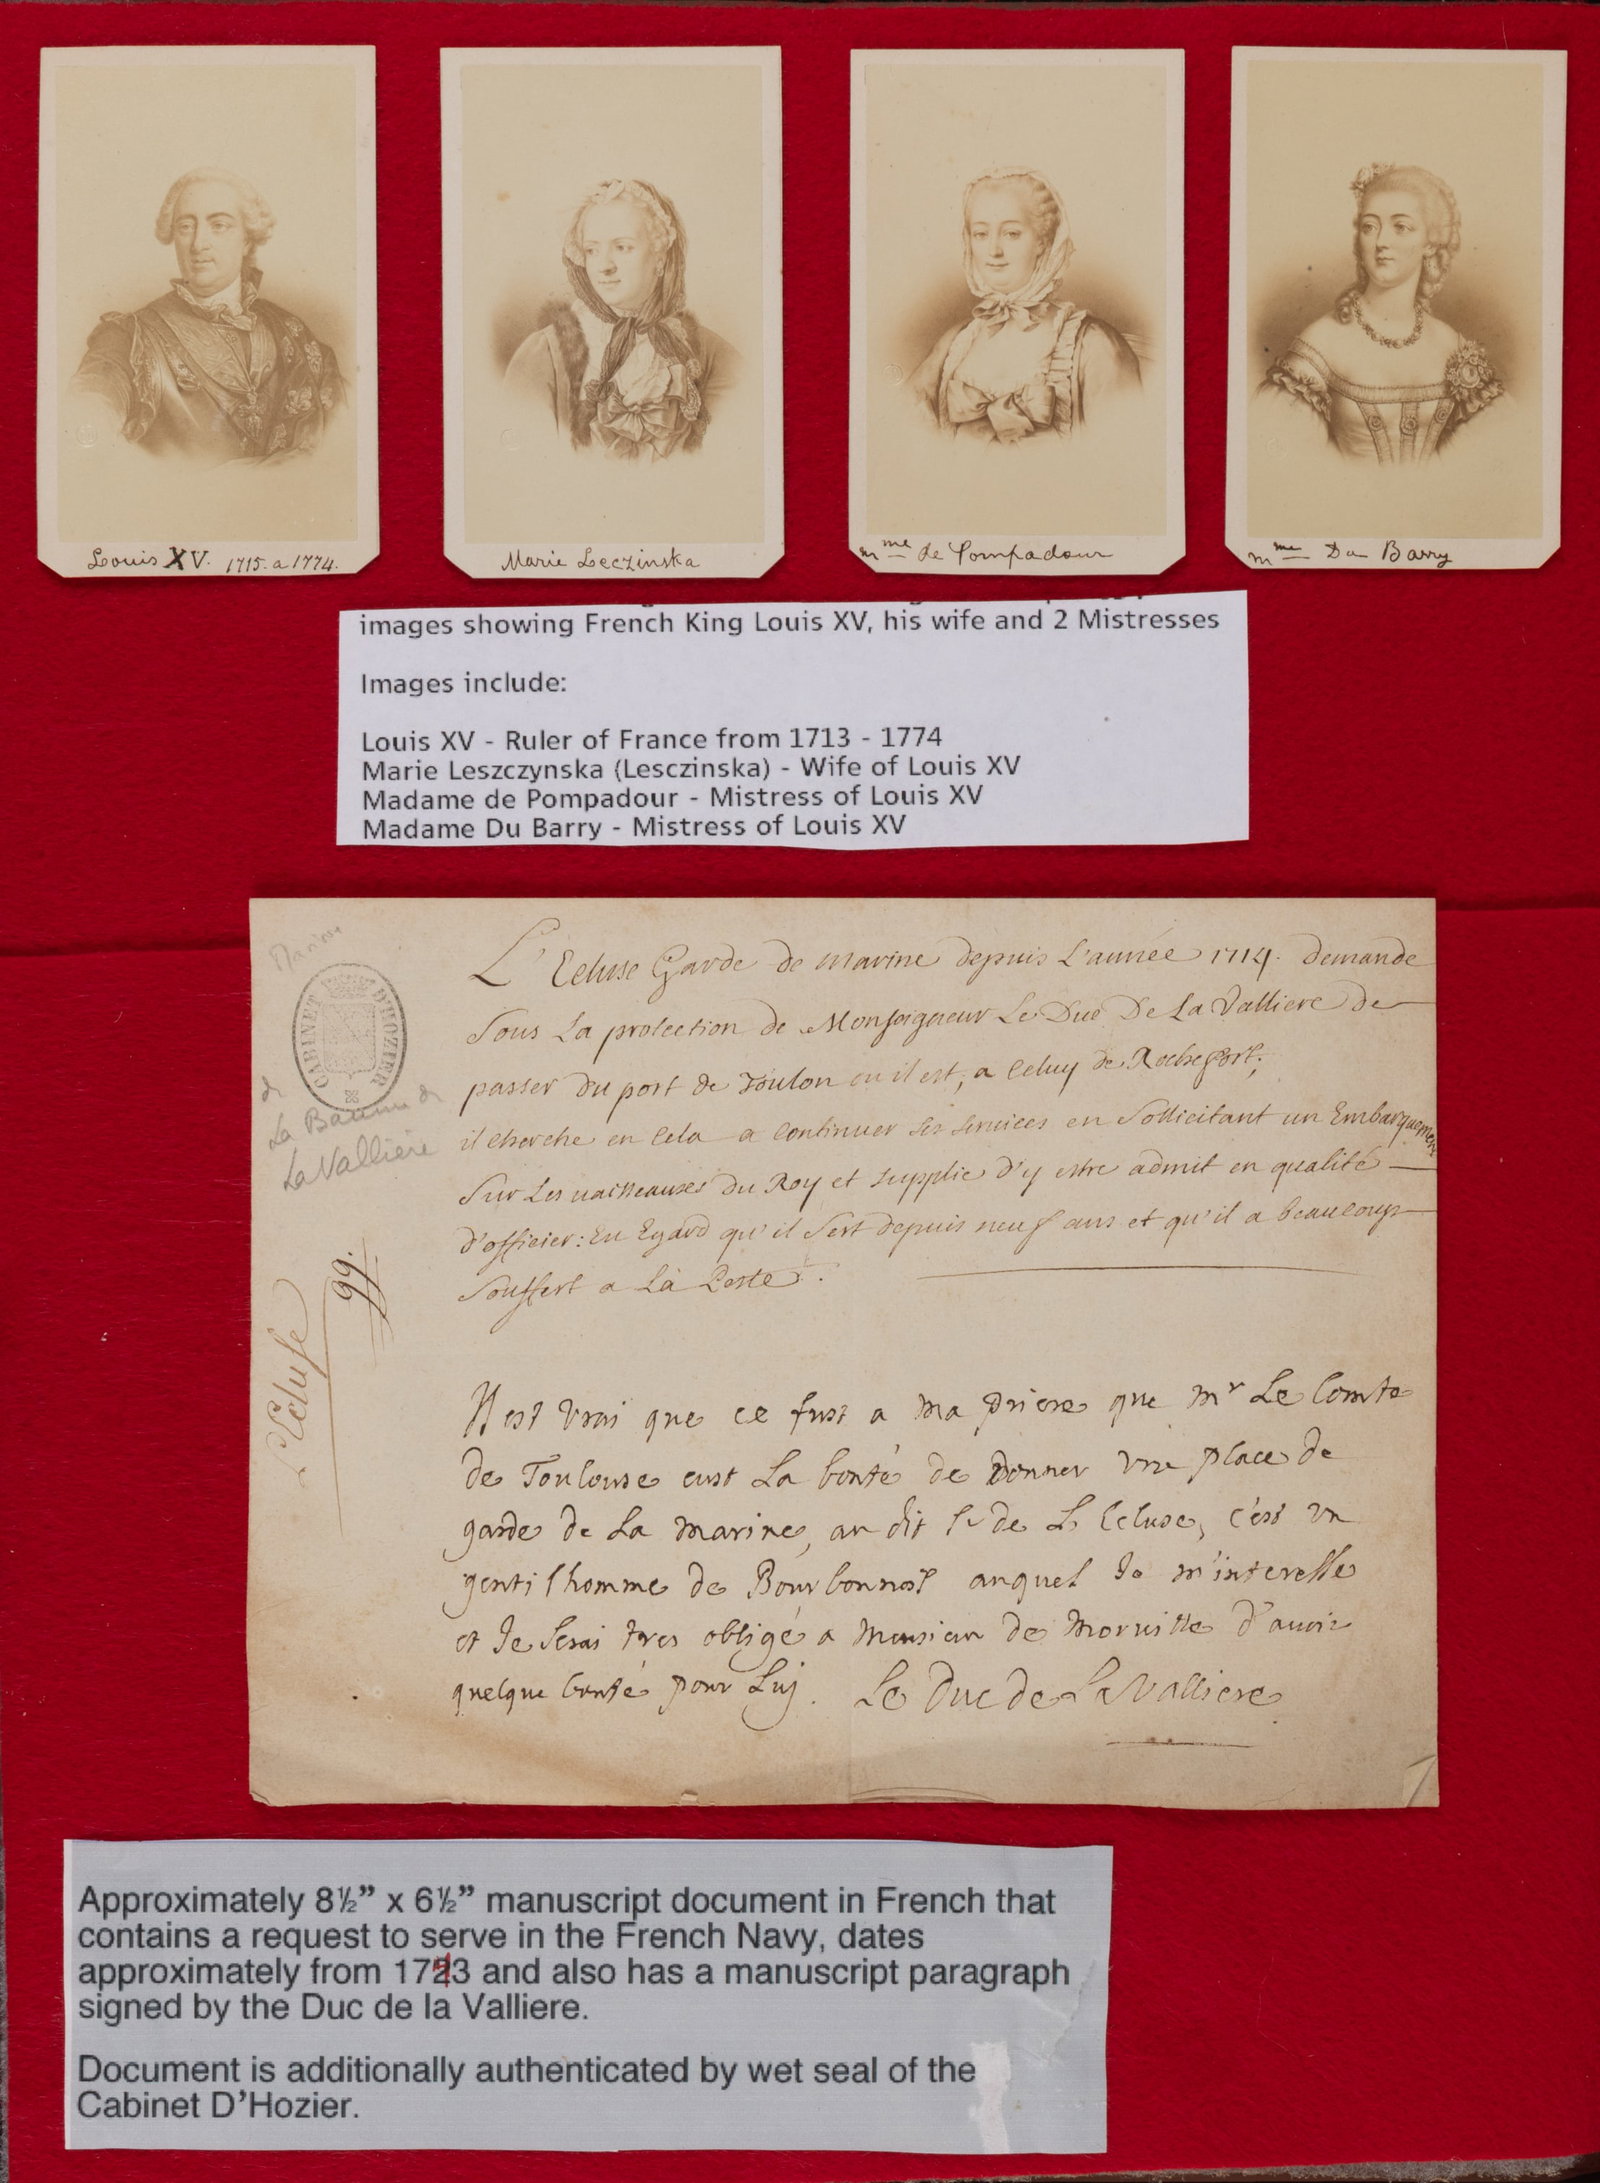 Louis XV. 1715. a 1774.
Marie Leczinska
Mme de Pompadour
Mme Du Barry
images showing French King Louis XV, his wife and 2 Mistresses
Images include:
Louis XV - Ruler of France from 1713 - 1774
Marie Leszczynska (Lesczinska) - Wife of Louis XV
Madame de Pompadour - Mistress of Louis XV
Madame Du Barry - Mistress of Louis XV
CABINET D'HOZIER
de
La Baume de
La Vallière
L'Ecluse
99.
L'Ecluse Garde de marine depuis L'année 1714. demande
Sous La protection de Monseigneur Le Duc De La Valliere de
passer du port de Toulon ou il est, a Celuy de Rochefort;
il cherche en Cela a Continuer ses services en Sollicitant un Embarquement
Sur Les vaisseaux du Roy et supplie d'y estre admit en qualité
d'officier: En Egard qu'il Sert depuis neuf ans et qu'il a beaucoup
Souffert a La Peste.
Il est vrai que ce fust a ma priere que Mr Le Comte
de Toulouse eust La bonté de Donner une place de
garde de La marine, au dit Sr de L'Ecluse, c'est un
gentilhomme de Bourbonnois auquel Je m'interesse
et Je serai tres obligé a Monsieur de Morville d'avoir
quelque bonté pour Luy. Le Duc de La Valliere
Approximately 8½” x 6½” manuscript document in French that
contains a request to serve in the French Navy, dates
approximately from 1723 and also has a manuscript paragraph
signed by the Duc de la Valliere.
Document is additionally authenticated by wet seal of the
Cabinet D’Hozier.